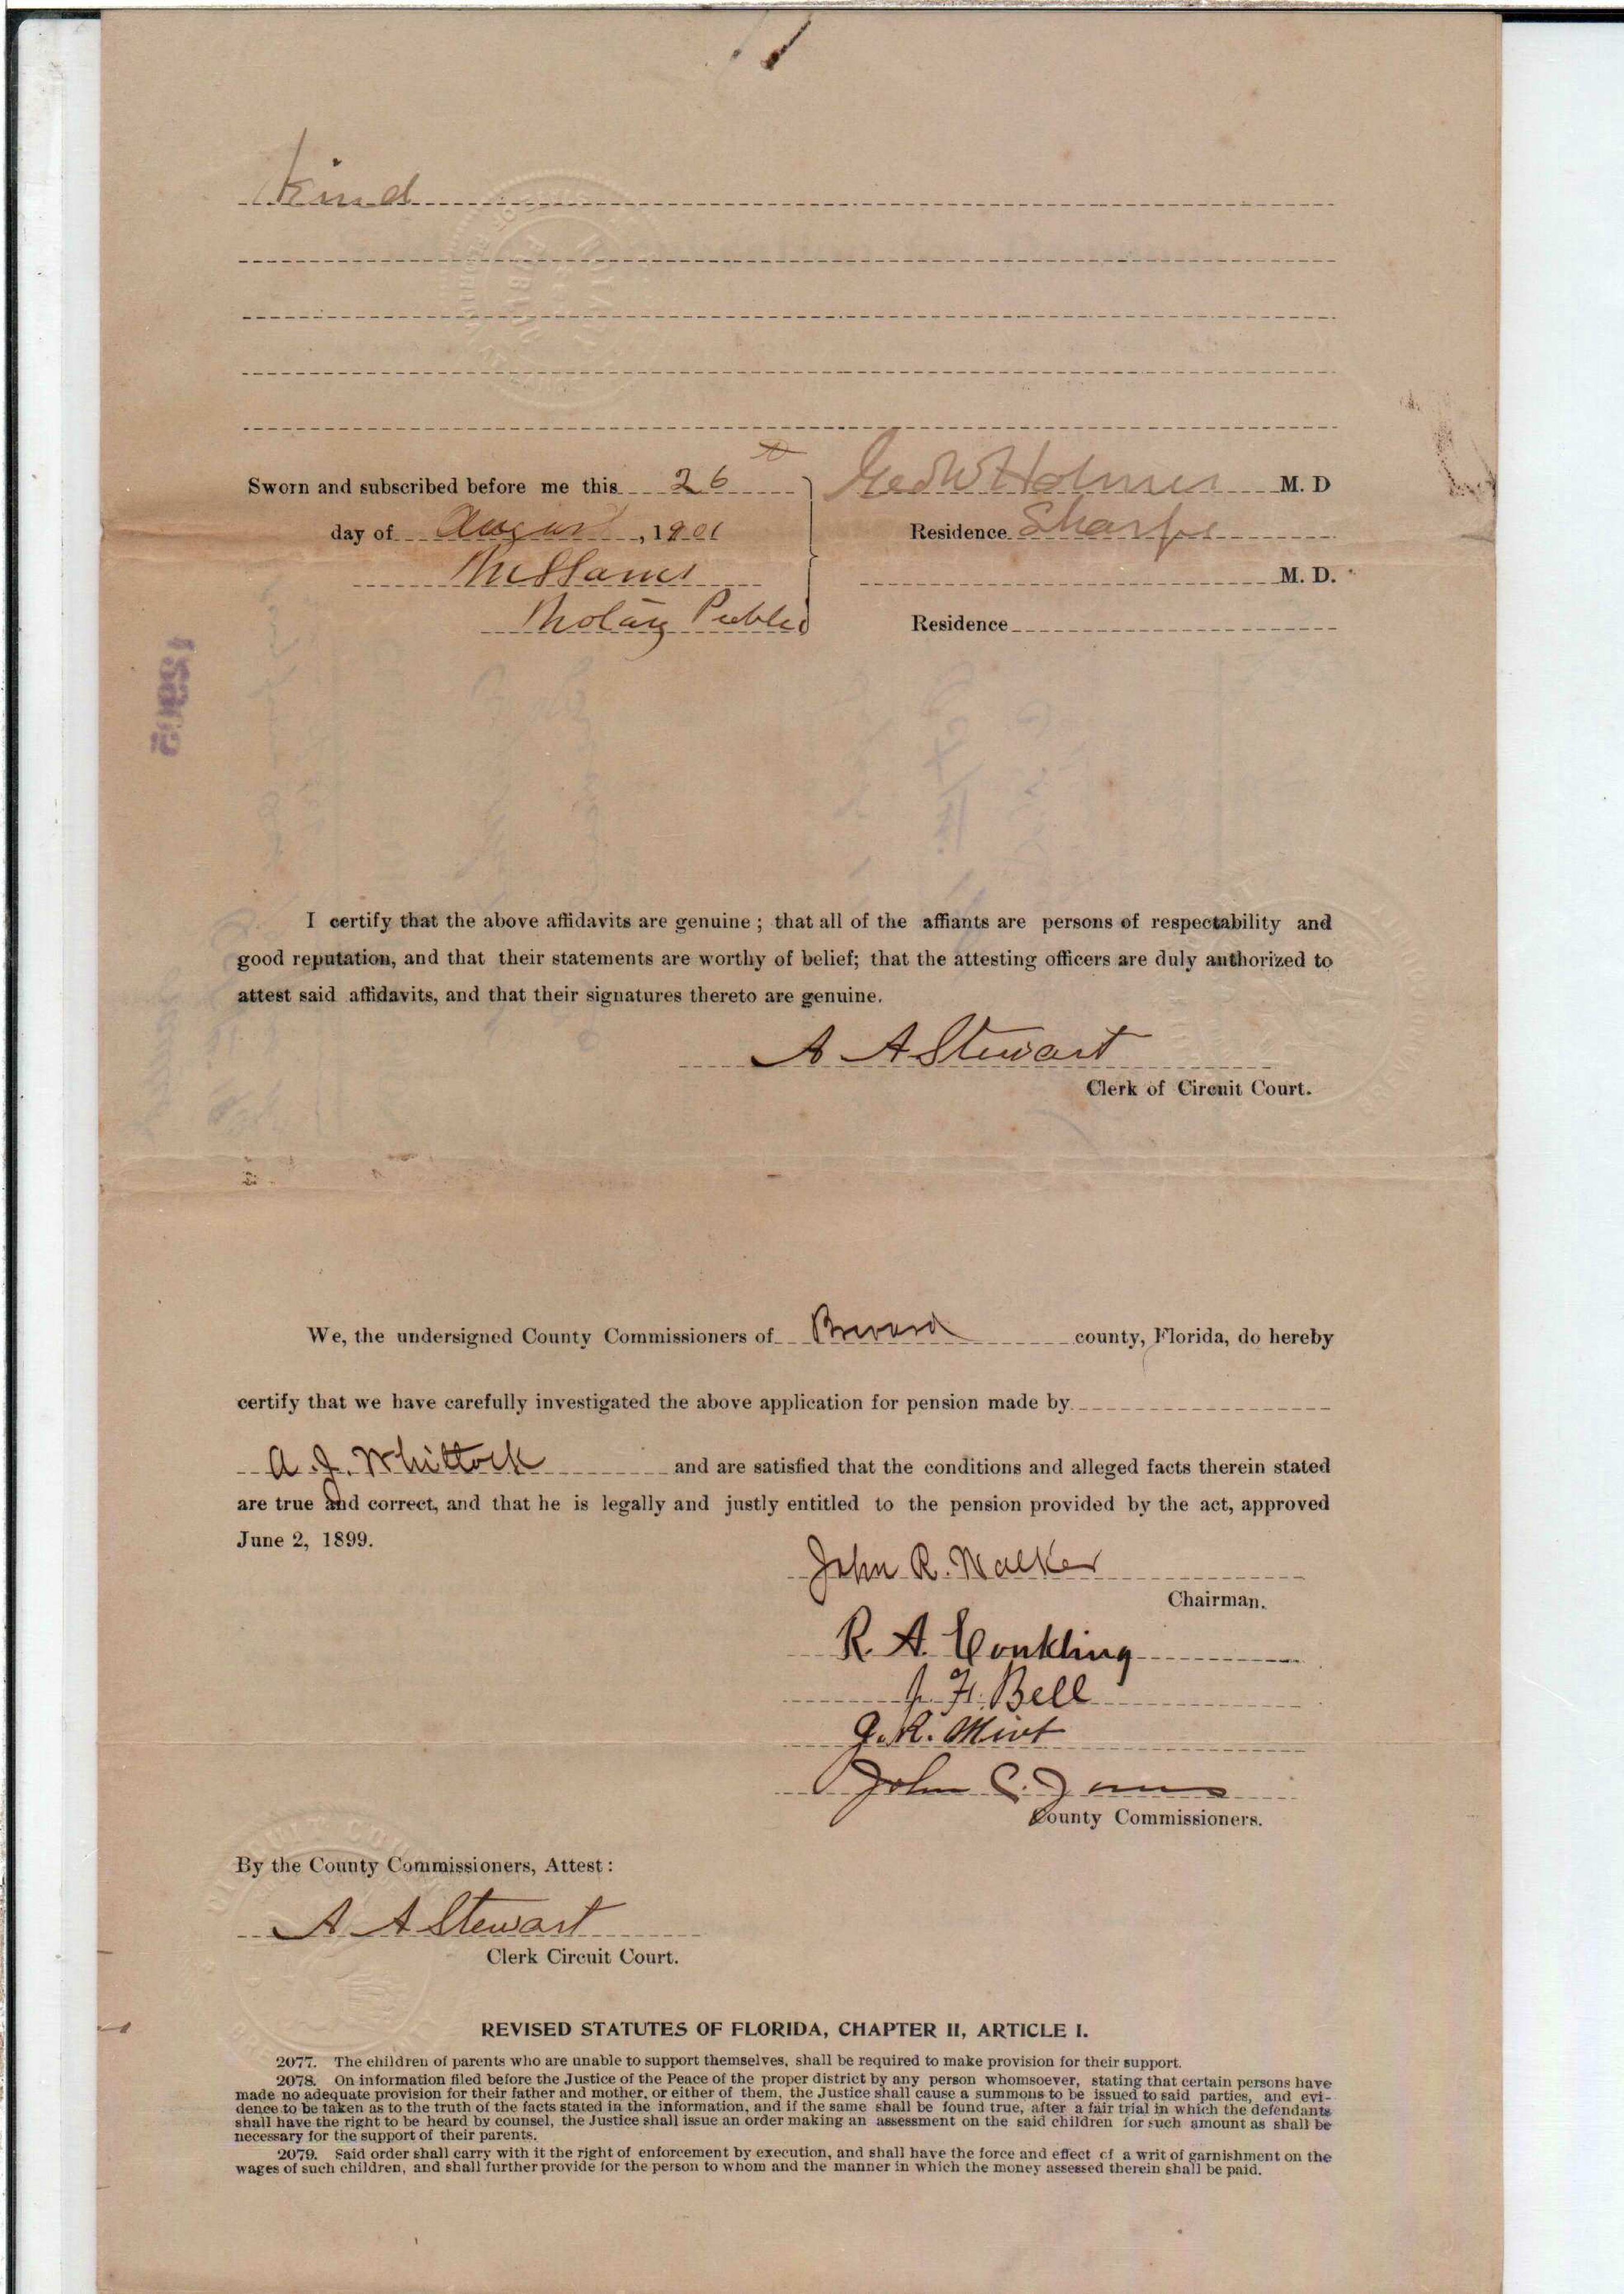 kind
Sworn and subscribed before me this 26th
day of August, 1901
Notary Public
Geo W Holmes M. D
Residence Sharpes
M. D.
Residence
I certify that the above affidavits are genuine ; that all of the affiants are persons of respectability and
good reputation, and that their statements are worthy of belief; that the attesting officers are duly authorized to
attest said affidavits, and that their signatures thereto are genuine.
A A Stewart
Clerk of Circuit Court.
We, the undersigned County Commissioners of Brevard county, Florida, do hereby
certify that we have carefully investigated the above application for pension made by
A. J. Whittock and are satisfied that the conditions and alleged facts therein stated
are true and correct, and that he is legally and justly entitled to the pension provided by the act, approved
June 2, 1899.
John R. Walker
Chairman.
R. A. Conkling
J. F. Bell
John C. Jones
County Commissioners.
By the County Commissioners, Attest :
A A Stewart
Clerk Circuit Court.
REVISED STATUTES OF FLORIDA, CHAPTER II, ARTICLE I.
2077. The children of parents who are unable to support themselves, shall be required to make provision for their support.
2078. On information filed before the Justice of the Peace of the proper district by any person whomsoever, stating that certain persons have
made no adequate provision for their father and mother, or either of them, the Justice shall cause a summons to be issued to said parties, and evi-
dence to be taken as to the truth of the facts stated in the information, and if the same shall be found true, after a fair trial in which the defendants
shall have the right to be heard by counsel, the Justice shall issue an order making an assessment on the said children for such amount as shall be
necessary for the support of their parents.
2079. Said order shall carry with it the right of enforcement by execution, and shall have the force and effect of a writ of garnishment on the
wages of such children, and shall further provide for the person to whom and the manner in which the money assessed therein shall be paid.